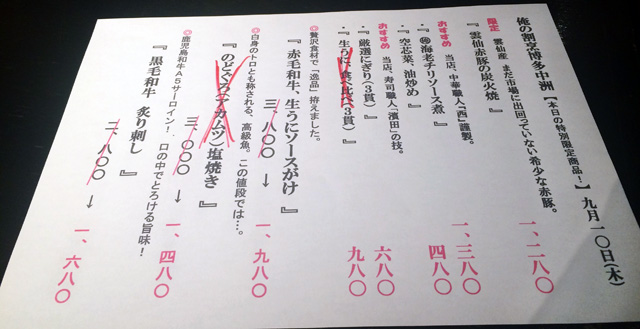 俺の割烹博多中洲 【本日の特別限定商品!】 九月一〇日(木)
限定 雲仙産 まだ市場に出回っていない希少な赤豚。
・『雲仙赤豚の炭火焼』 一、二八〇
おすすめ 当店、中華職人「西」謹製。
・『㊕海老チリソース煮』 一、三八〇
・『空芯菜、油炒め』 四八〇
おすすめ 当店、寿司職人「濱田」の技。
・『厳選にぎり(3貫)』 六八〇
・『生うに、食べ比べ(3貫)』 九八〇
◎贅沢食材で「逸品」拵えました。
『赤毛和牛、生うにソースがけ』 三、八〇〇 → 一、九八〇
◎白身のトロとも称される、高級魚。この値段では…。
『のどぐろ(アカムツ)塩焼き』 三、〇〇〇 → 一、四八〇
◎鹿児島和牛A5サーロイン!.口の中でとろける旨味!
『黒毛和牛 炙り刺し』 二、八〇〇 → 一、六八〇